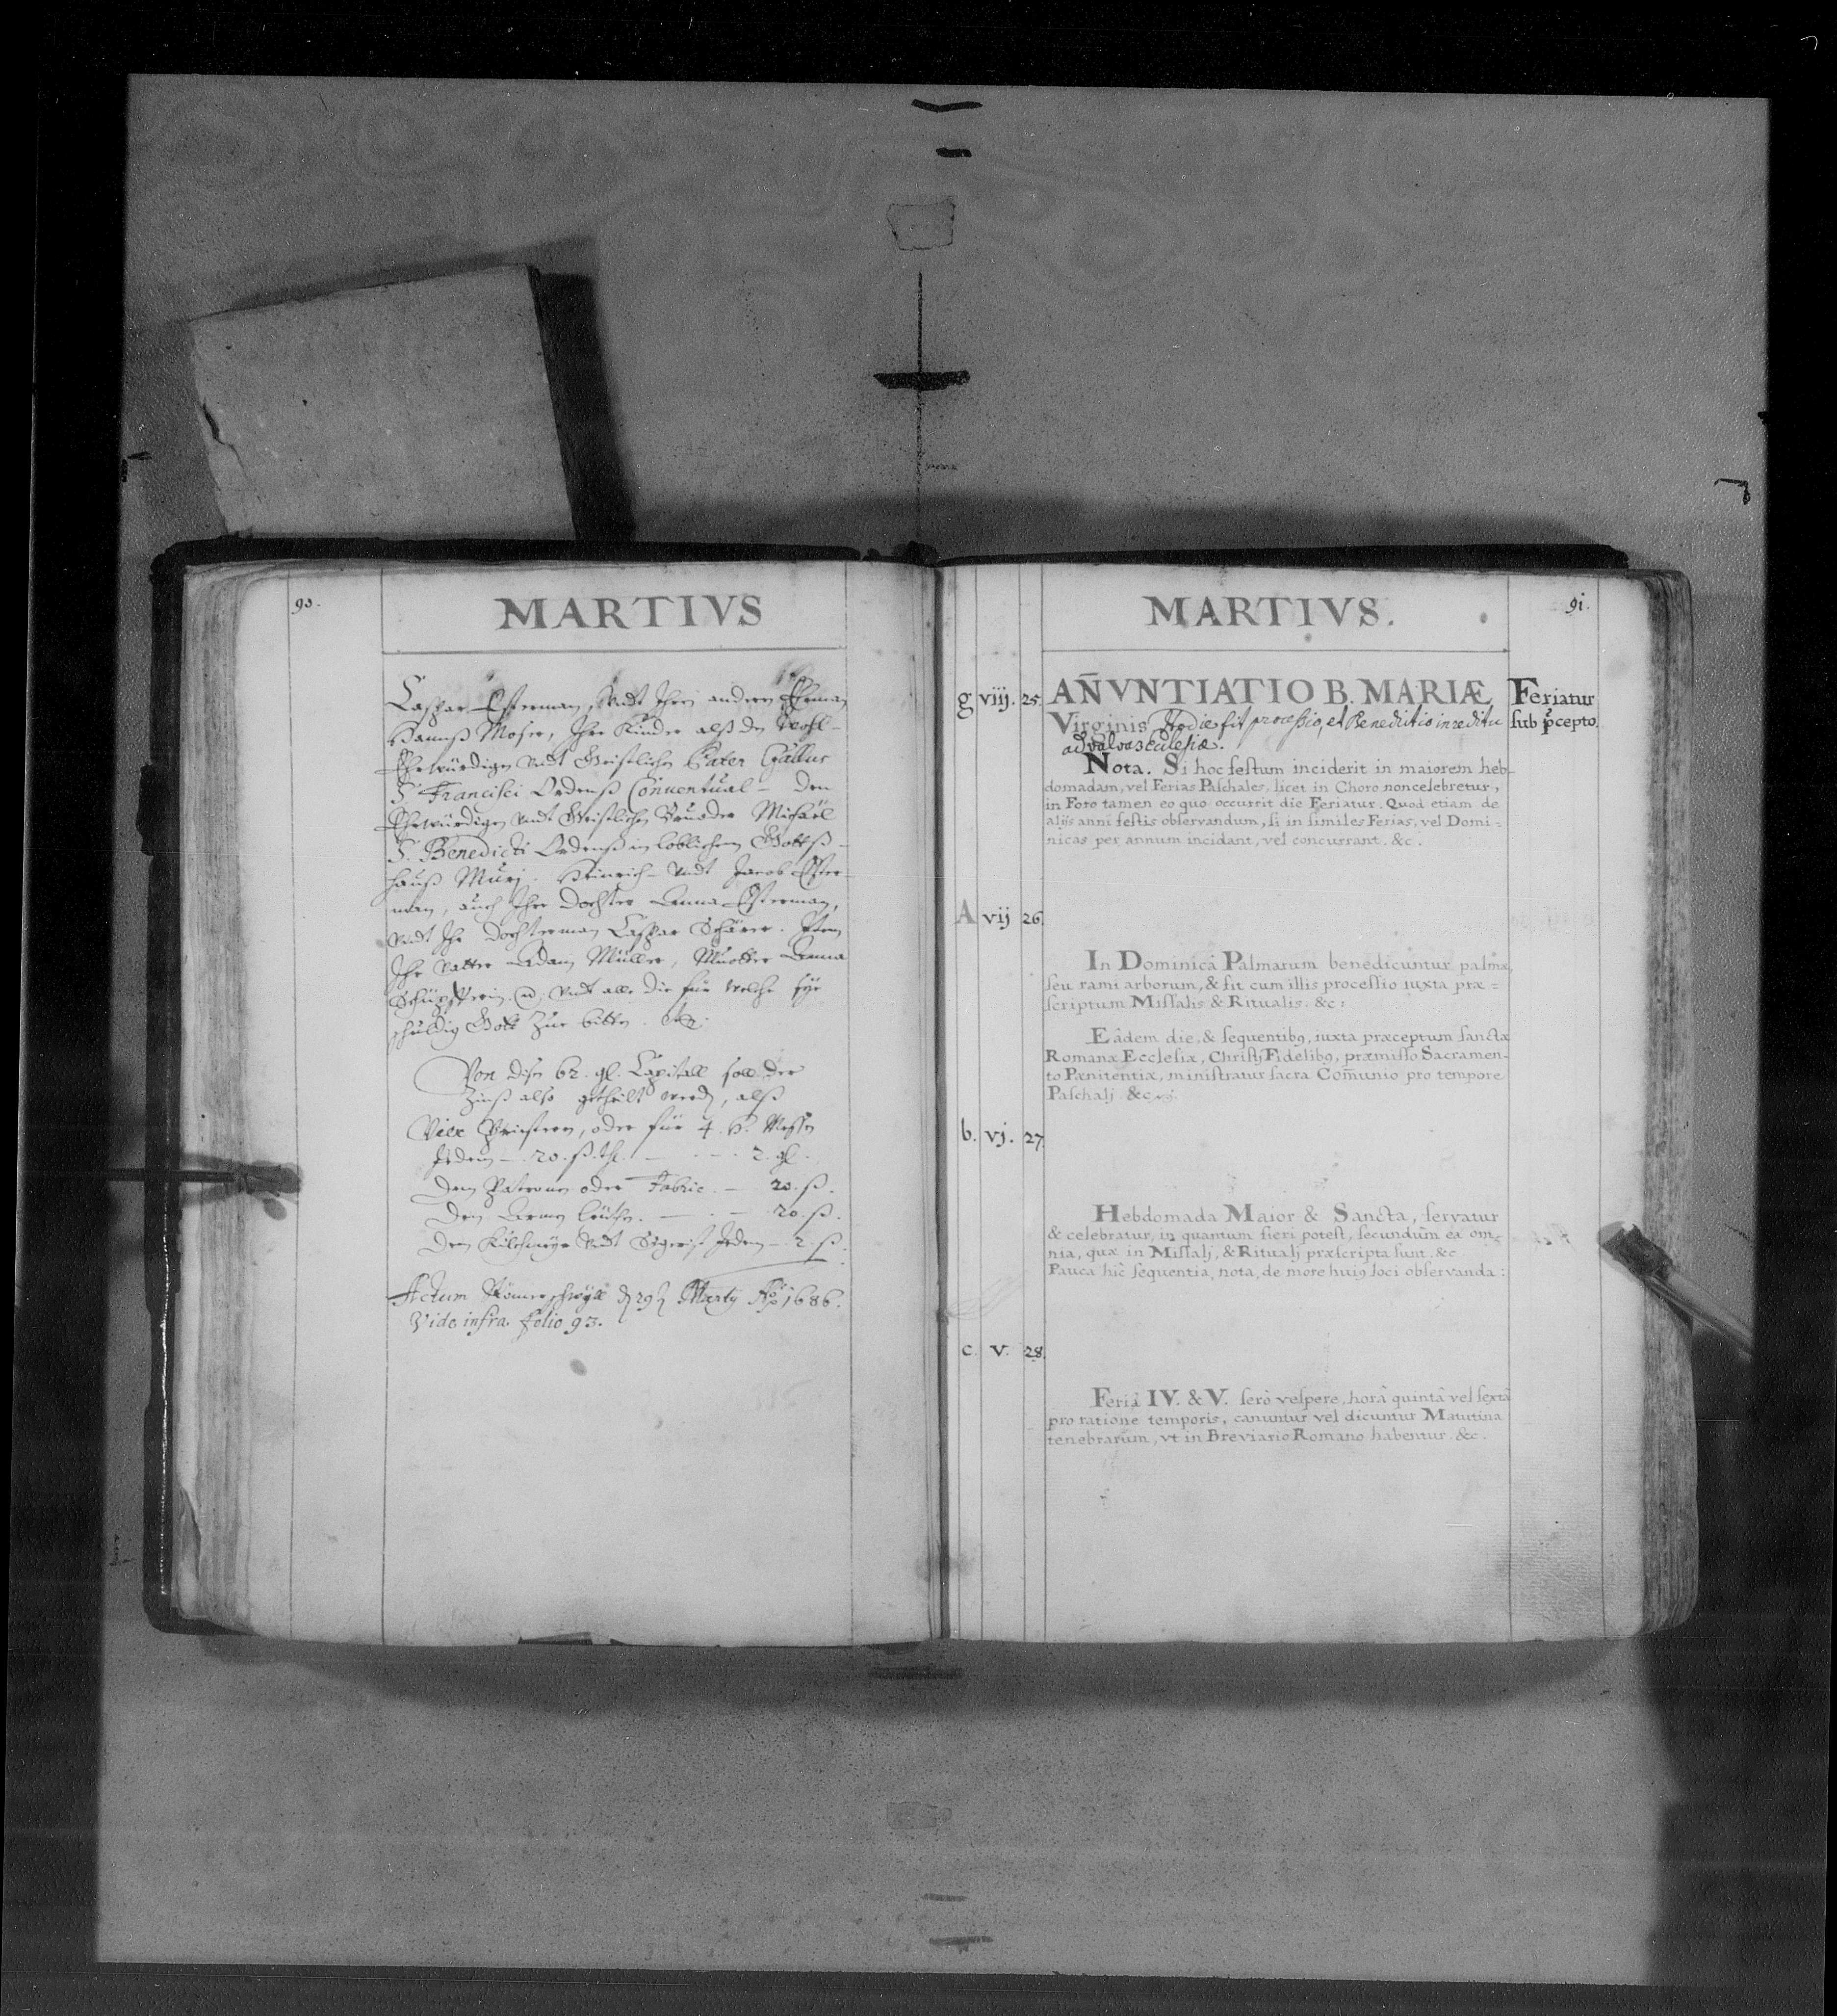 90.
MARTIVS
Caspar Esterman, Vndt Ihren anderen Eheman
Hannß Moser, Ihre Kinder alß der Wohl-
Ehrwürdigen Vndt Geistlichen Pater Gallus
S. Francisci Ordenß Conuentual – den
Ehrwürdigen Vndt Geistlichen Bruoder Michaël
S. Benedicti Ordenß in loblichem Gottß-
hauß Muri. Heinrich – Vndt Jacob Ester-
man, auch Ihre Dochter Anna Esterman,
Vndt Ihr Dochterman Caspar Schärer. Item
Ihr Vatter Adam Müller, Muotter Anna
Vndt alle die für welche sye
schuldig Gott Zue bitten.
Von disen 62. gl. Capitall soll der
Zinß also getheilt werden, alß
Vier Priesteren, oder für 4. H. Messen
Jedem – 20. ß. – 2. gl.
Dem Patronen oder Fabric. – 20. ß.
Den Armen leüthen. – 20. ß.
Dem Kilchmeyer Vndt Sigerist Jedem – 2. ß.
Actum Römerschwyll 29 Martij Aō 1686.
Vide infra folio 93.
MARTIVS.
91.
g viij. 25. AÑVNTIATIO B. MARIÆ Feriatur
Virginis Hodie fit processio, et Benedictio in reditu sub p̃cepto.
ad valvas Ecclesiæ.
Nota. Si hoc festum inciderit in maiorem heb-
domadam, vel Ferias Paschales, licet in Choro non celebretur,
in Foro tamen eo quo occurrit die Feriatur. Quod etiam de
alijs anni festis observandum, si in similes Ferias, vel Domi-
nicas per annum incidant, vel concurrant. &c.
A vij 26.
In Dominicâ Palmarum benedicuntur palmæ,
seu rami arborum, & fit cum illis processio iuxta præ-
scriptum Missalis & Ritualis. &c:
Eâdem die, & sequentibꝰ, iuxta præceptum sanctæ
Romanæ Ecclesiæ, Christi Fidelibꝰ, præmisso Sacramen-
to Pænitentiæ, ministratur sacra Com̃unio pro tempore
Paschalj. &c.
b. vj. 27.
Hebdomada Maior & Sancta, servatur
& celebratur, in quantum fieri potest, secundum ea om-
nia, quæ in Missalj, & Ritualj præscripta sunt. &c
Pauca hic sequentia, nota, de more huiꝰ loci observanda:
c. v. 28.
Feriâ IV. & V. serò vespere, horâ quintâ vel sextâ
pro ratione temporis, canuntur vel dicuntur Matutina
tenebrarum, vt in Breviario Romano habentur. &c.